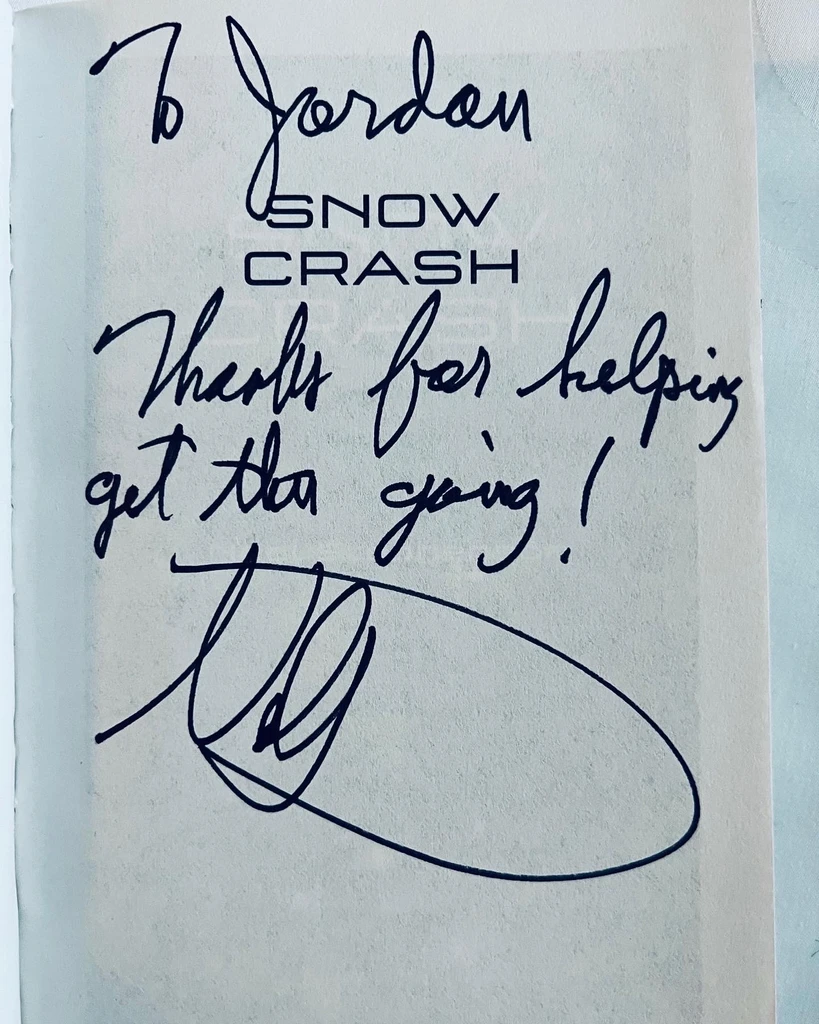 To Jordan
SNOW
CRASH
Thanks for helping
get this going!